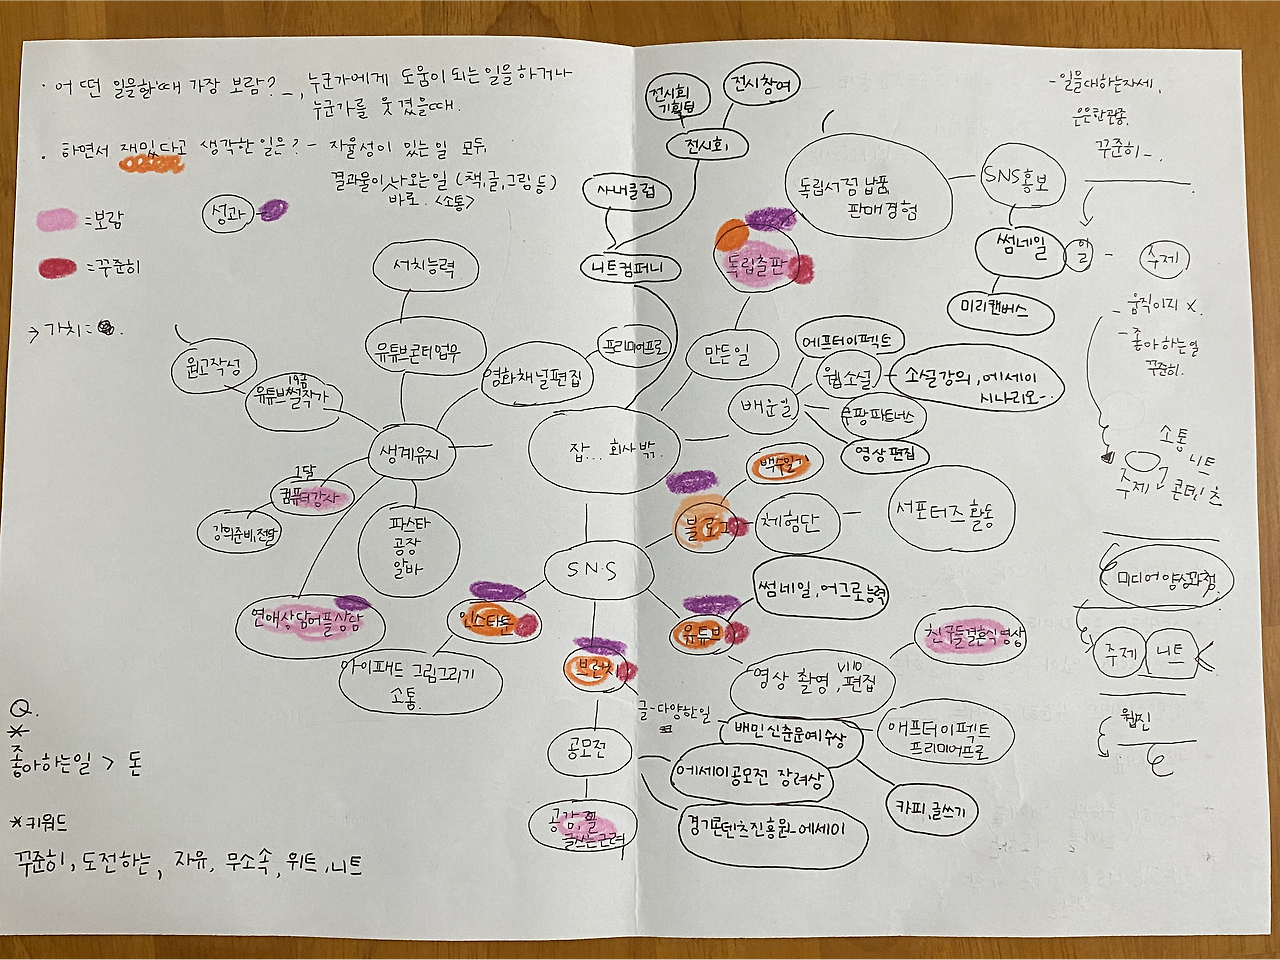 · 어떤 일을할때 가장 보람? - 누군가에게 도움이 되는 일을 하거나
누군가를 웃겼을때.
· 하면서 재밌다고 생각한 일은? - 자율성이 있는 일 모두,
결과물이 나오는 일 (책,글,그림 등)
바로. <소통>
= 보람
성과
= 꾸준히
→ 가치 =
전시회
기획팀
전시참여
전시회
사내클럽
니트컴퍼니
독립서점 납품
판매경험
SNS홍보
썸네일
미리캔버스
독립출판
만든일
- 일을대하는자세,
은은한관종.
꾸준히 -.
일 - 주제
- 움직이지 X.
- 좋아하는일
꾸준히.
서치능력
유튜브콘티업무
영화채널편집
프리미어프로
원고작성
19금
유튜브썰작가
생계유지
1달
컴퓨터강사
강의준비,전달
파스타
공장
알바
연애상담어플상담
잡... 회사밖.
배운일
에프터이펙트
웹소설
소설강의, 에세이
시나리오-.
쿠팡파트너스
영상편집
백수일기
블로그
체험단
서포터즈 활동
SNS
인스타툰
아이패드 그림그리기
소통.
브런치
글-다양한일
공모전
공감,힐
글쓰는근력
배민신춘문예수상
에세이공모전 장려상
경기콘텐츠진흥원-에세이
카피,글쓰기
유튜브
썸네일, 어그로능력
영상 촬영, 편집
VLLO
친구들결혼식영상
애프터이펙트
프리미어프로
소통
니트
주제
콘텐츠
미디어양성과정.
주제
니트
웹진
Q.
*
좋아하는일 > 돈
*키워드
꾸준히, 도전하는, 자유, 무소속, 위트, 니트